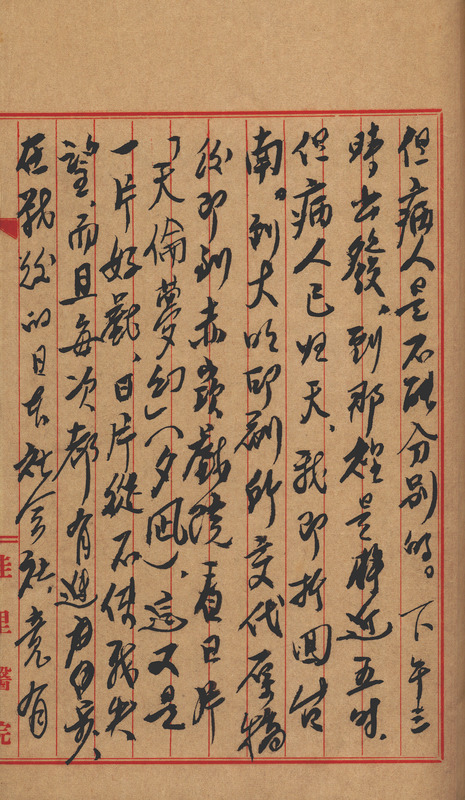 但病人是不能分別的。下午三
時出發、到那裡是將近五时、
但病人已归天、我即折回台
南。到大明印刷所交代原稿
後即到赤嵌戲院看日片
「天倫夢幻」（夕凪）、這又是
一片好戲、日片從不使我失
望、而且每次都有進
在戰後的日本社会 竟有
佳里醫院